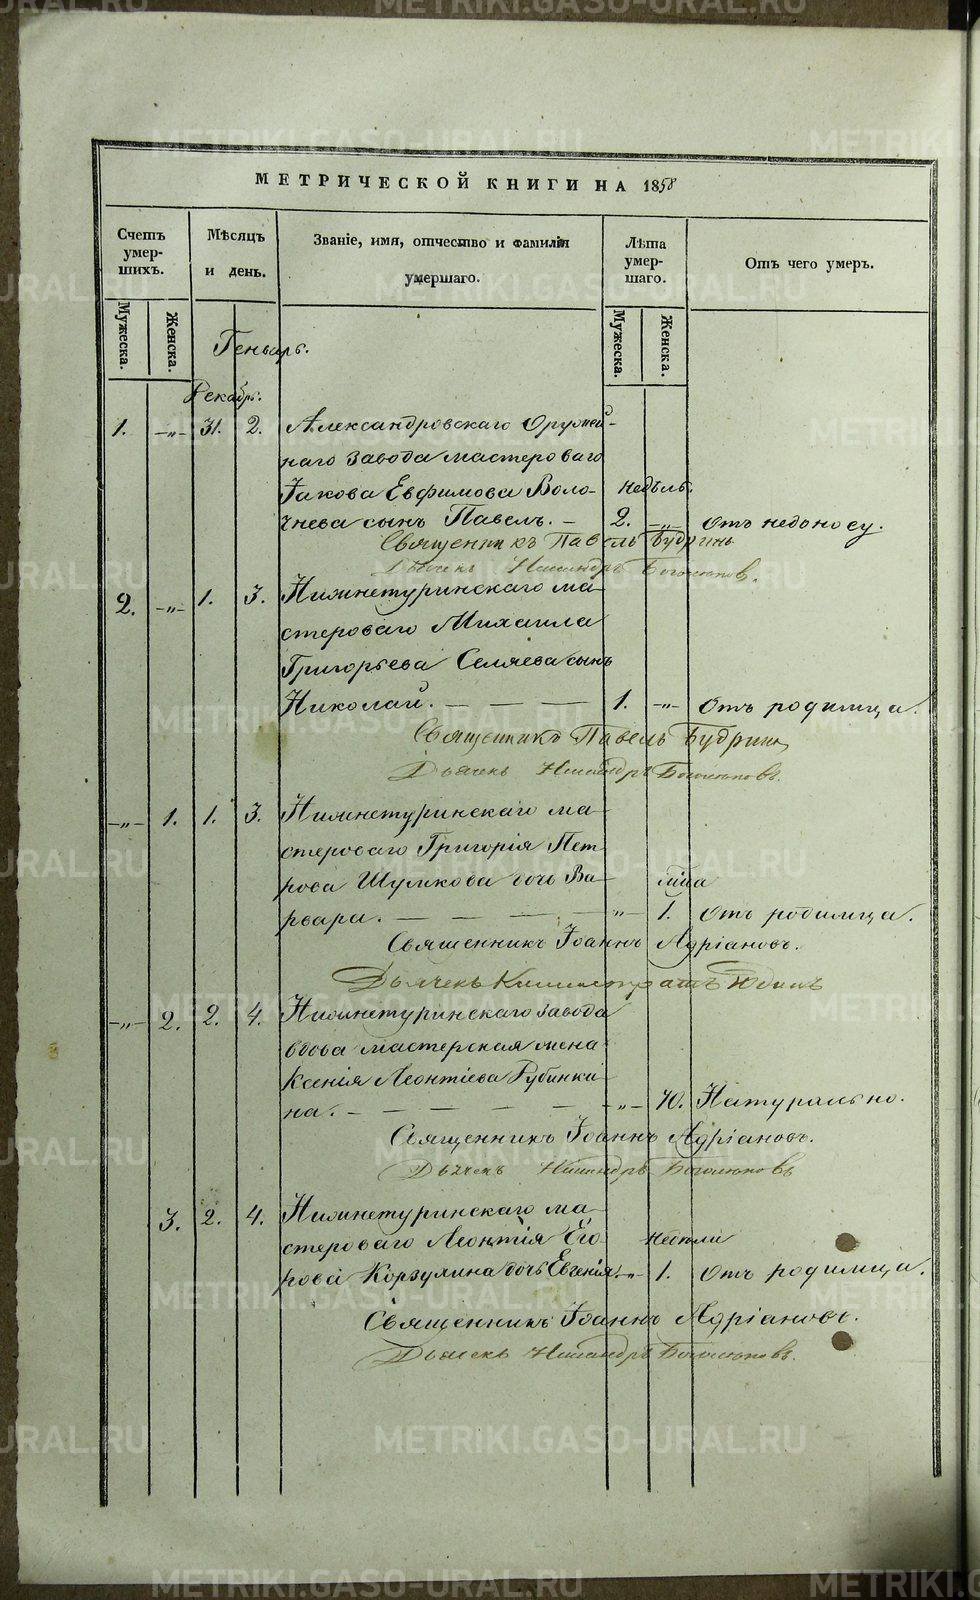 МЕТРИЧЕСКОЙ КНИГИ НА 1858
Счетъ умер-шихъ.
Мѣсяцъ и день.
Званіе, имя, отчество и фамилія умершаго.
Лѣта умер-шаго.
Отъ чего умеръ.
Мужеска.
Женска.
Мужеска.
Женска.
Генварь.
Декабрь.
1. -„- 31. 2. Александровскаго Оружей-
наго завода мастероваго
Іакова Евфимова Воло- недѣль.
чнева сынъ Павелъ. - 2. -„- Отъ недоносу.
Священникъ Павелъ Будринъ
Дьячекъ Никандръ Боголюбов.
2. -„- 1. 3. Нижнетуринскаго ма-
стероваго Михаила
Григорьева Селяева сынъ
Николай. - - - - 1. -„- Отъ родимца.
Священникъ Павелъ Будринъ
Дьячекъ Никандръ
-„- 1. 1. 3. Нижнетуринскаго ма-
стероваго Григорія Пет-
рова Шумкова дочь Ва-
рвара. - - - - -„- 1. Отъ родимца.
Священникъ Іоаннъ Адріановъ.
Дьячекъ Каллистратъ Юдинъ
-„- 2. 2. 4. Нижнетуринскаго завода
вдова мастерская жена
Ксенія Леонтіева Рубинки-
на. - - - - - -„- 70. Натурально.
Священникъ Іоаннъ Адріановъ.
Дьячекъ Никандръ
3. 2. 4. Нижнетуринскаго ма-
стероваго Леонтія Его- недѣли
рова Корзулина дочь Евгенія. -„- 1. Отъ родимца.
Священникъ Іоаннъ Адріановъ.
Дьячекъ Никандръ
METRIKI.GASO-URAL.RU